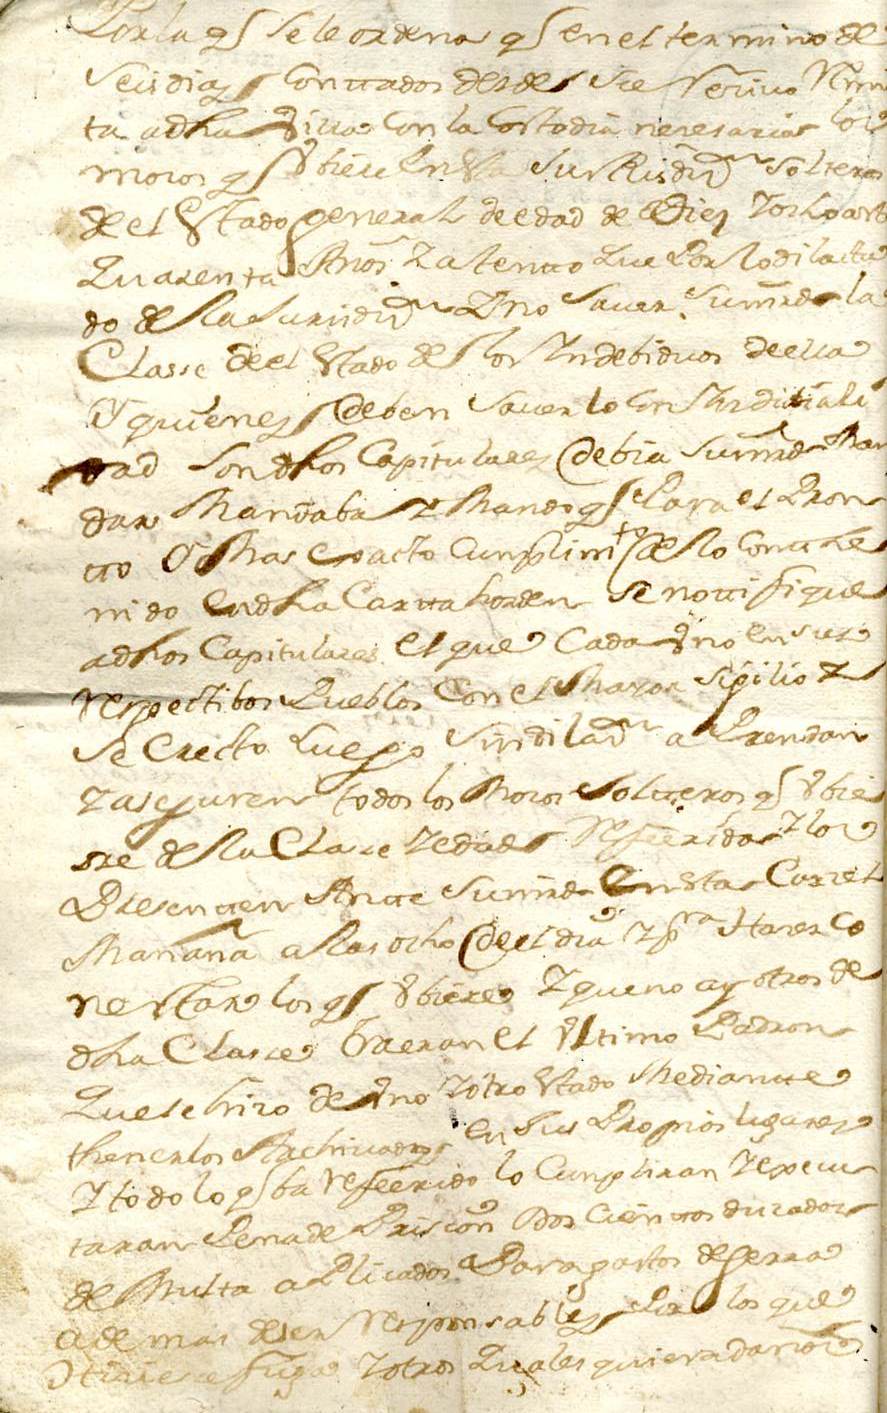 Por la q^e se le ordena q^e en el termino de
seis dias Conttados desde su reciuo Remi
ta a dha Villa Con la Costodia nezesaria los
mozos q^e Vbiere En Esta Jurisdiz^n solteros
de el Estado general de edad de Diez Yocho astta
Quarenta Años Y atento que Por lo dilatta
do de la Jurisdiz^n Y no Sauer su mrd la
Classe de el Estado de los Yndebiduos de ella
Y quienes deben Sauerlo con Yndibiduali
dad Son dhos Capitulares debia su mrd Man
dar Mandaba Y Mando q^e Para el Pron
tto Y Mas Exacto Cunplim^to de lo Contthe
nido En dha Cartta horden se nottifique
a dhos Capitulares el que Cada Vno en sus
respectibos Pueblos Con el Mayor Sigilio Y
Secrecto Luego sin dilaz^n a Prendan
Y aseguren todos los Mozos Soltteros q^e Vbie
sre de la Clase Y edades Refferidas Y los
Presentten Antte su mrd En Esta Carzel
Mañana a las ocho de el dia Y p^ra Hazer Co
nestar los q^e Vbiere Y que no ay otros de
dha Classe traeran el Vltimo Padron
Que se hizo de Vno Y otro Estado Mediantte
thenerlos Archiuados en Sus Propios lugares
Y todo lo q^e ba refferido lo Cunpliran Y execu
taran Pena de Prision Dos Cienttos ducados
de Multa aPlicados a Para gastos de gerra
ademas de ser responsables Por los que
Hiziere fuga Y otros Quales quiera daños